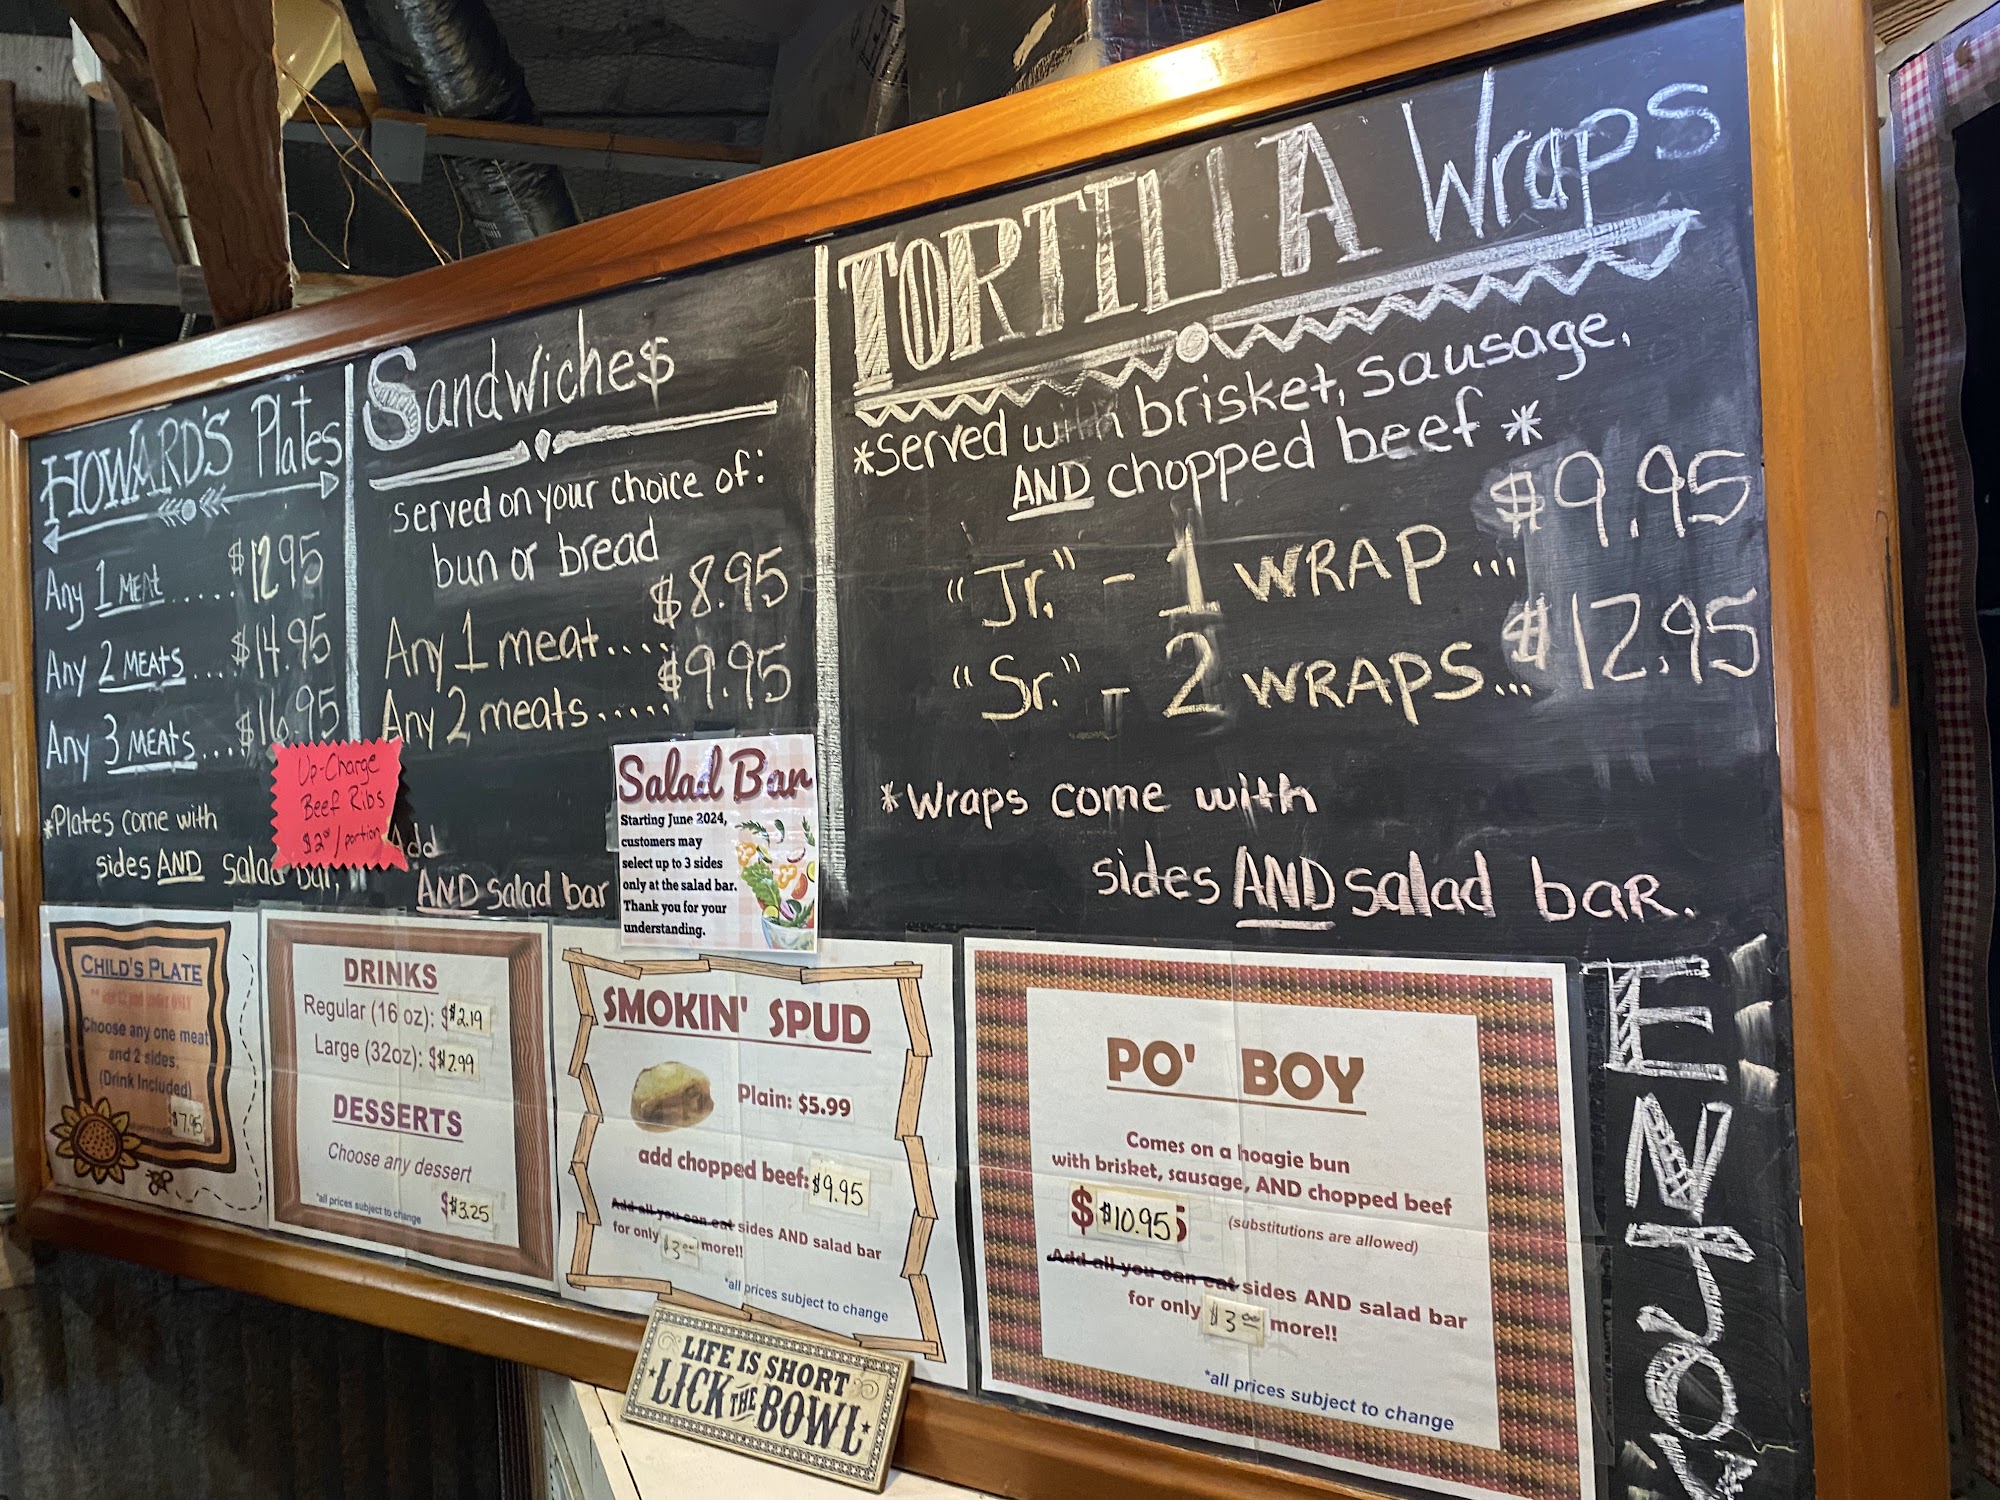 HOWARD'S Plates
Any 1 MEAT..... $12.95
Any 2 MEATS.... $14.95
Any 3 MEATS.... $16.95
*Plates come with
sides AND salad bar,
Up-Charge
Beef Ribs
$2.00/portion
Sandwiches
served on your choice of:
bun or bread
Any 1 meat..... $8.95
Any 2 meats..... $9.95
Add
AND salad bar
Salad Bar
Starting June 2024,
customers may
select up to 3 sides
only at the salad bar.
Thank you for your
understanding.
TORTILLA Wraps
*Served with brisket, sausage,
AND chopped beef*
"Jr." - 1 WRAP... $9.95
"Sr." - 2 WRAPS... $12.95
*Wraps come with
sides AND salad bar.
CHILD'S PLATE
Choose any one meat
and 2 sides.
(Drink Included)
$7.95
DRINKS
Regular (16 oz): $$2.19
Large (32oz): $$2.99
DESSERTS
Choose any dessert
*all prices subject to change
$$3.25
SMOKIN' SPUD
Plain: $5.99
add chopped beef: $9.95
Add all you can eat sides AND salad bar
for only $3.00 more!!
*all prices subject to change
PO' BOY
Comes on a hoagie bun
with brisket, sausage, AND chopped beef
$ $10.95
(substitutions are allowed)
Add all you can eat sides AND salad bar
for only $3.00 more!!
*all prices subject to change
ENJOY
LIFE IS SHORT
LICK THE BOWL